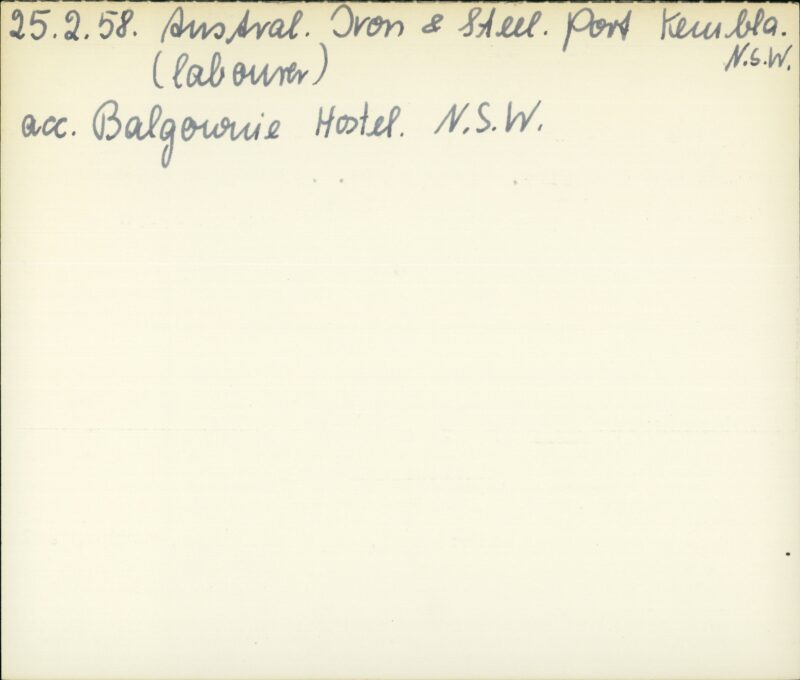 25.2.58. Austral. Iron & Steel. Port Kembla.
N.S.W.
(labourer)
acc. Balgownie Hostel. N.S.W.